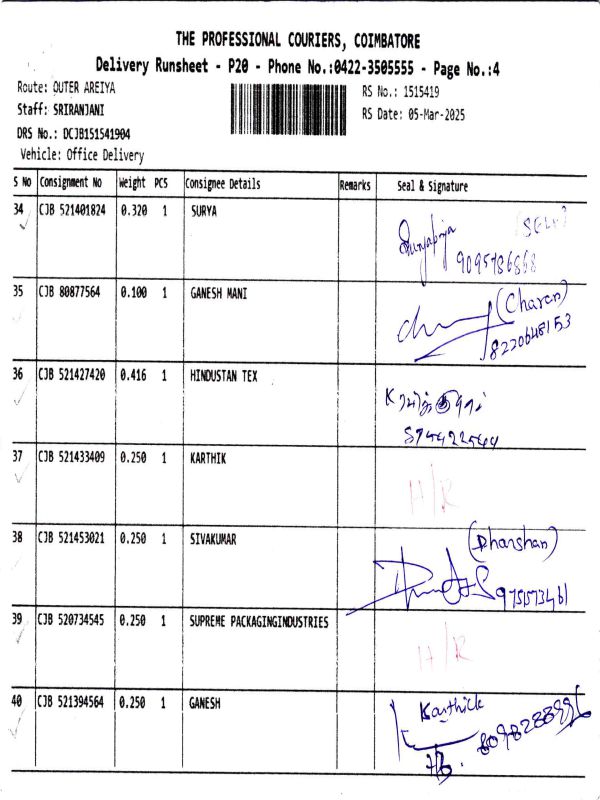 THE PROFESSIONAL COURIERS, COIMBATORE
Delivery Runsheet - P20 - Phone No.:0422-3505555 - Page No.:4
Route: OUTER AREIYA
RS No.: 1515419
Staff: SRIRANJANI
RS Date: 05-Mar-2025
DRS No.: DCJB151541904
Vehicle: Office Delivery
S No Consignment No Weight PCS Consignee Details Remarks Seal & Signature
34 CJB 521401824 0.320 1 SURYA
(SELF)
9095786868
35 CJB 80877564 0.100 1 GANESH MANI
(Charan)
8220648153
36 CJB 521427420 0.416 1 HINDUSTAN TEX
37 CJB 521433409 0.250 1 KARTHIK
H/R
38 CJB 521453021 0.250 1 SIVAKUMAR
(Dharshan)
39 CJB 520734545 0.250 1 SUPREME PACKAGINGINDUSTRIES
H/R
40 CJB 521394564 0.250 1 GANESH
Karthick